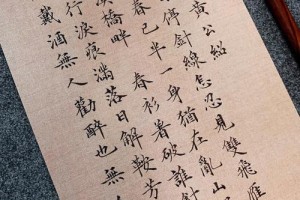 黃公紹
停針線怎忍見雙飛燕
春已半一身猶在亂山
橋畔 春衫著破誰針
行淚痕滿落日解鞍芳
戴酒無人勸醉也無